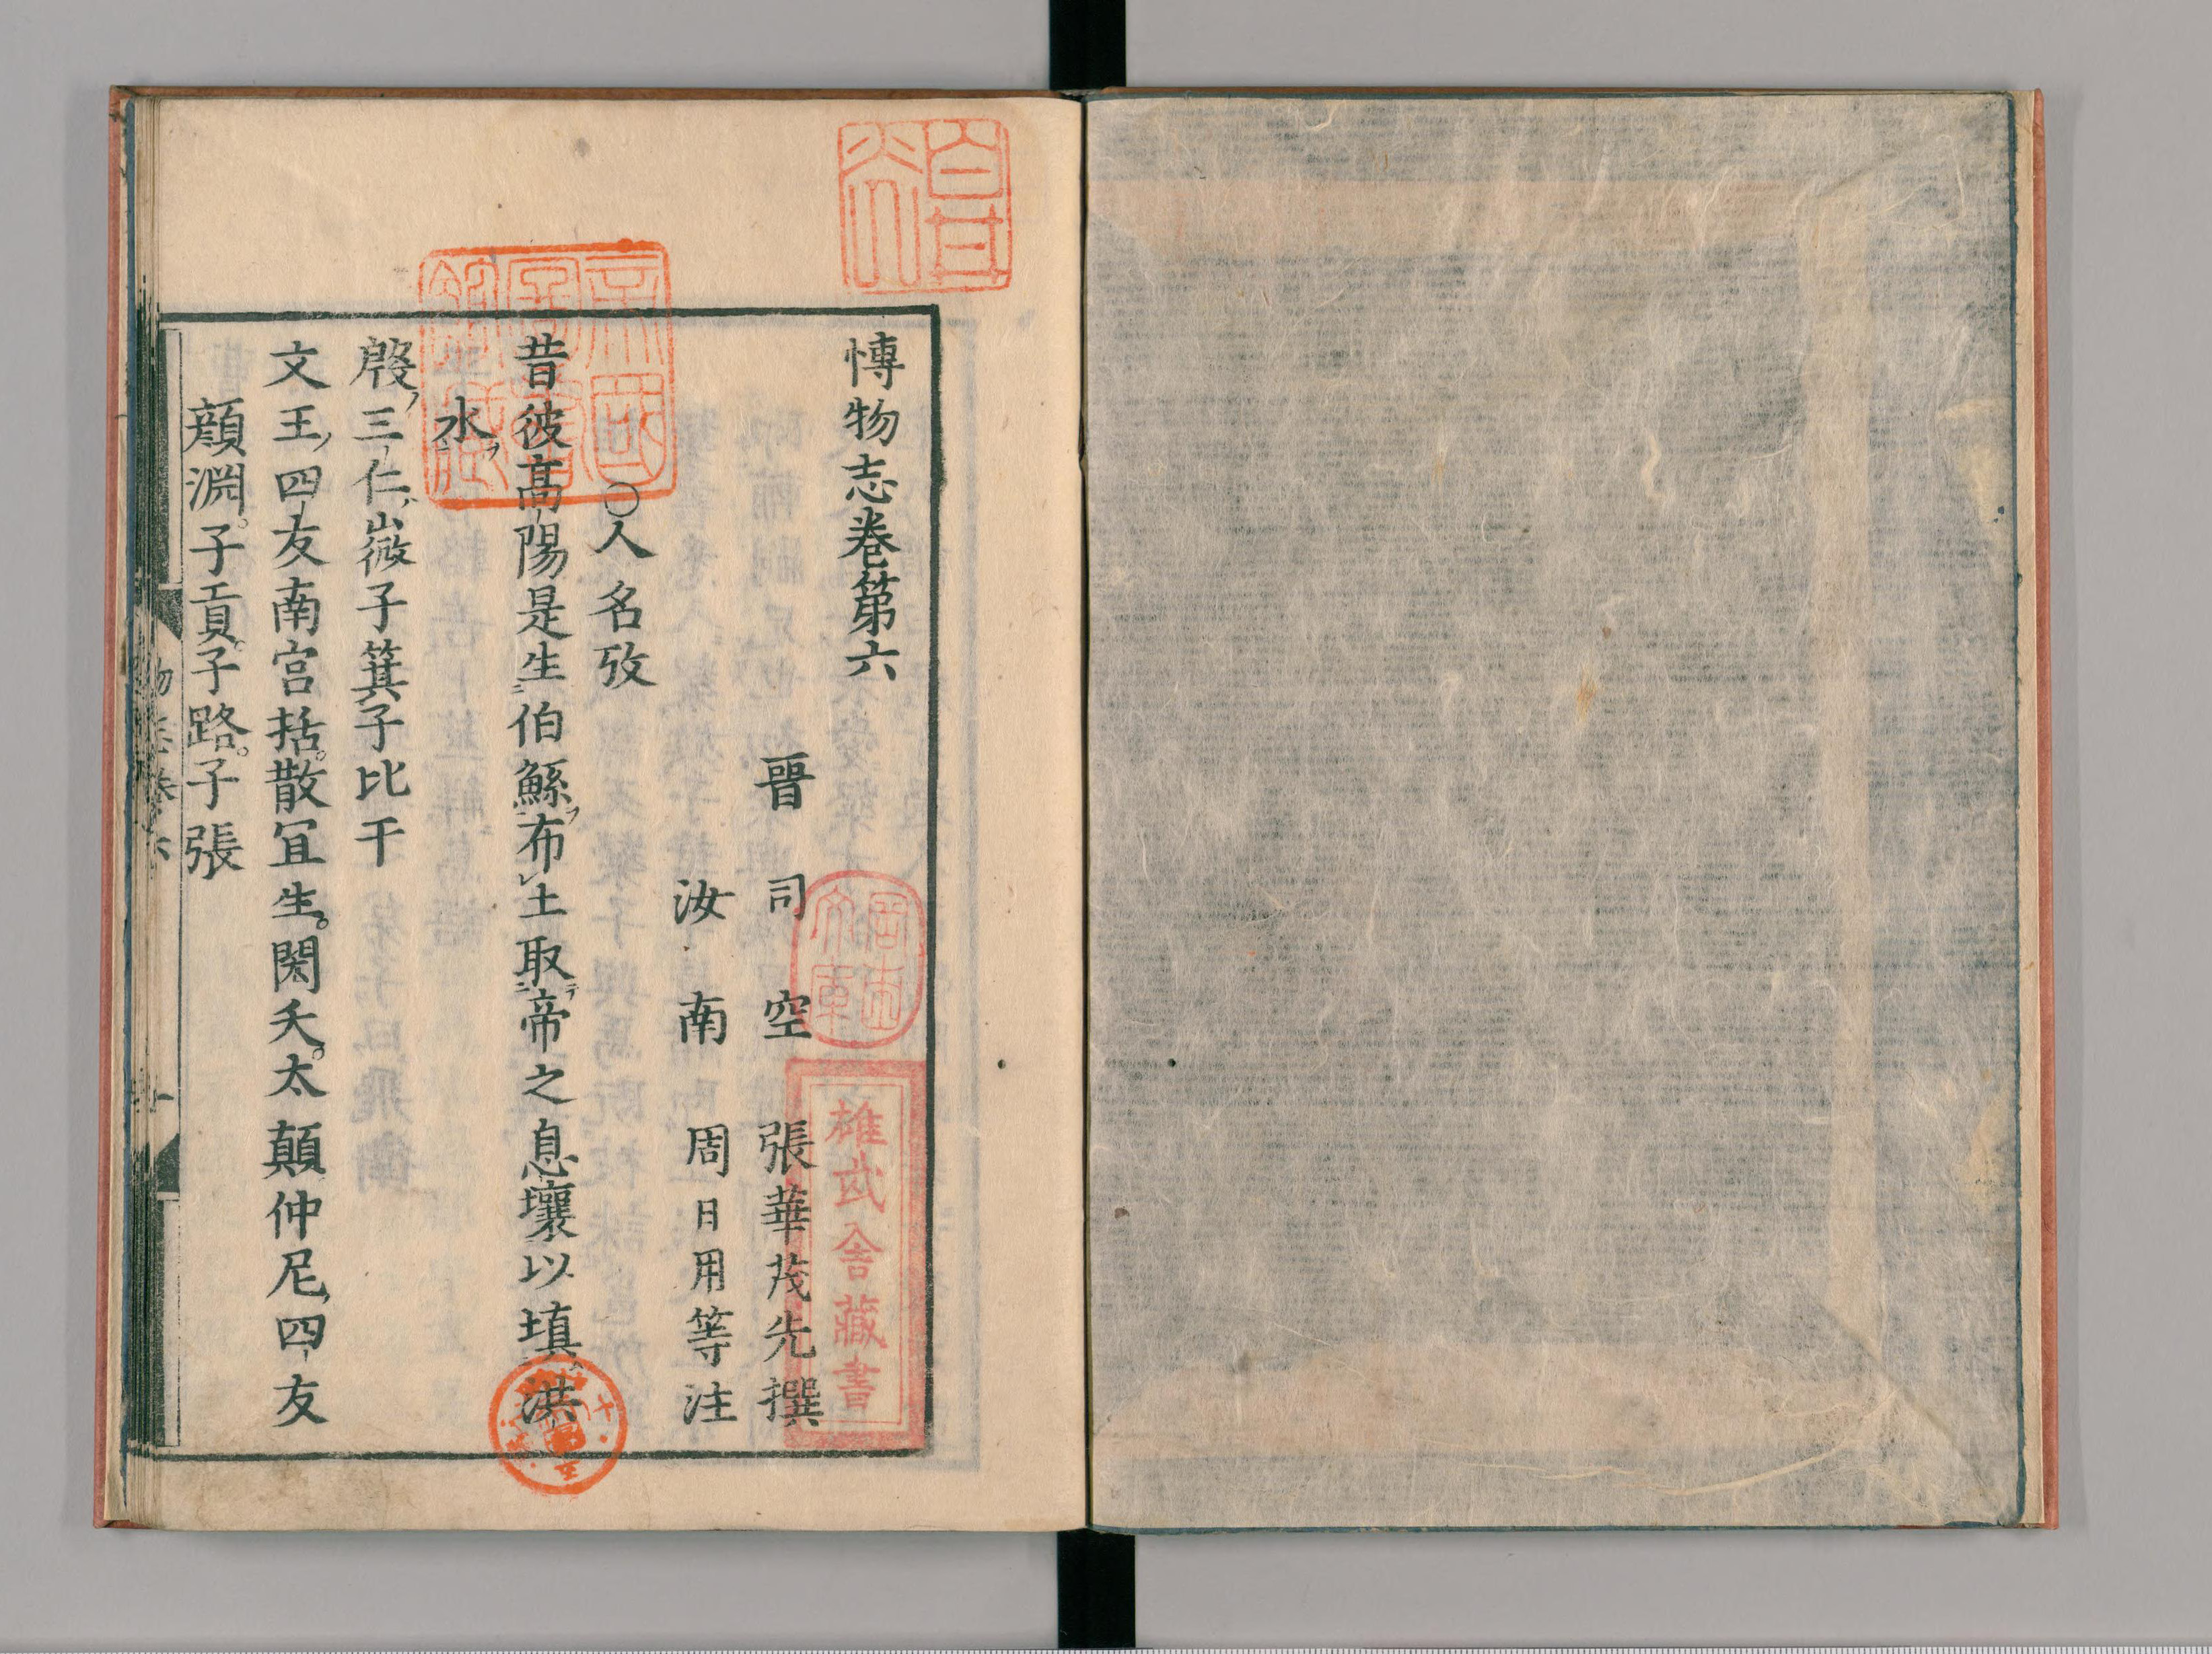 博物志卷第六
晉司空張華茂先撰
汝南周日用等注
○人名攷
昔彼高陽是生伯鯀布土取帝之息壤以填洪
水
殷三仁微子箕子比干
文王四友南宮括散宜生閎夭太顛仲尼四友
顏淵子貢子路子張
雄武舍藏書